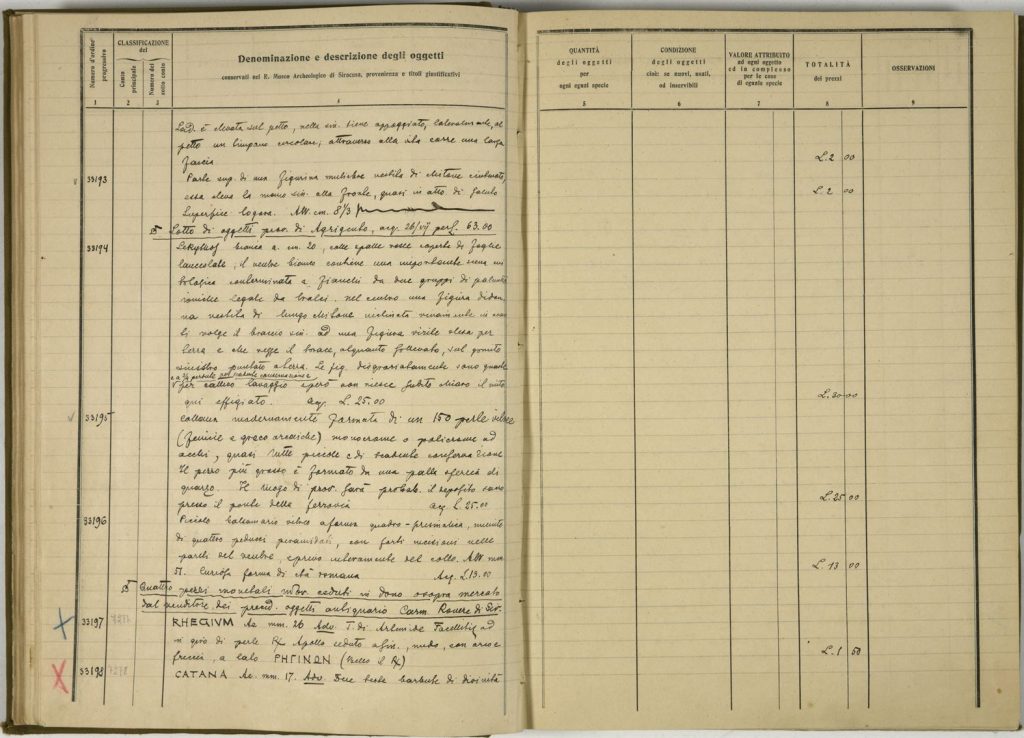 Numero d'ordine progressivo
CLASSIFICAZIONE del
Conto principale
Numero del sotto conto
Denominazione e descrizione degli oggetti
conservati nel R. Museo Archeologico di Siracusa, provenienza e titoli giustificativi
QUANTITÀ degli oggetti per ogni egual specie
CONDIZIONE degli oggetti cioè: se nuovi, usati, od inservibili
VALORE ATTRIBUITO ad ogni oggetto ed in complesso per le cose di eguale specie
TOTALITÀ dei prezzi
OSSERVAZIONI
1 2 3 4 5 6 7 8 9
è elevata sul petto, nella sin. tiene appoggiato, lateralmente, al
petto un timpano circolare; attraverso alla vita corre una larga
fascia L. 2 00
33193 Parte sup. di una figurina muliebre vestita di
essa eleva la mano sin. alla fronte, quasi in atto di saluto L. 2 00
Superfice logora. Alt. cm. 8 1/3
Lotto di oggetti prov. di Agrigento, acq. 26/VII per L. 63.00
33194 Lekythos bianca a. cm. 20, colle spalle rosse coperte di foglie
lanceolate; il ventre bianco contiene una importante scena
conterminata a fianchi da due gruppi di palmette
ioniche legate da tralci. nel centro una figura
vestita di lungo chitone inclinata
volge il braccio sin. ad una figura virile stesa per
terra e che regge il torace, alquanto sollevato, sul gomito
sinistro puntato a terra. Le fig. disgraziatamente sono quasi
lavaggio e però non riesce subito chiaro il mito
qui effigiato. acq. L. 25.00 L. 30 00
33195 Collana modernamente formata di un 150 perle vitree
(fenicie e greco arcaiche) monocrome o policrome ad
occhi, quasi tutte piccole e di scadente conservazione
Il pezzo più grosso è formato da una palla sferica di
quarzo. Il luogo di prov. sarà probab. il sepolcreto
presso il ponte della ferrovia acq. L. 25.00 L. 25 00
33196 Piccolo balsamario vitreo a forma quadro-prismatica, munito
di quattro peducci piramidali, con forti incisioni nelle
pareti del ventre, e privo interamente del collo. Alt. mm
51. Curiosa forma di età romana Acq. L. 13.00 L. 13 00
Quattro pezzi monetali ceduti in dono sopra mercato
dal venditore dei preced. oggetti antiquario Carm.
33197 RHEGIVM Ae mm. 26 Adv. T. di Artemide ad
in giro di perle Rx Apollo seduto a sin., nudo, con arco e
freccia, a lato ΡΗΓΙΝΩΝ L. 1 50
33198 CATANA Ae. mm. 17. Adv. Due teste barbute di divinità